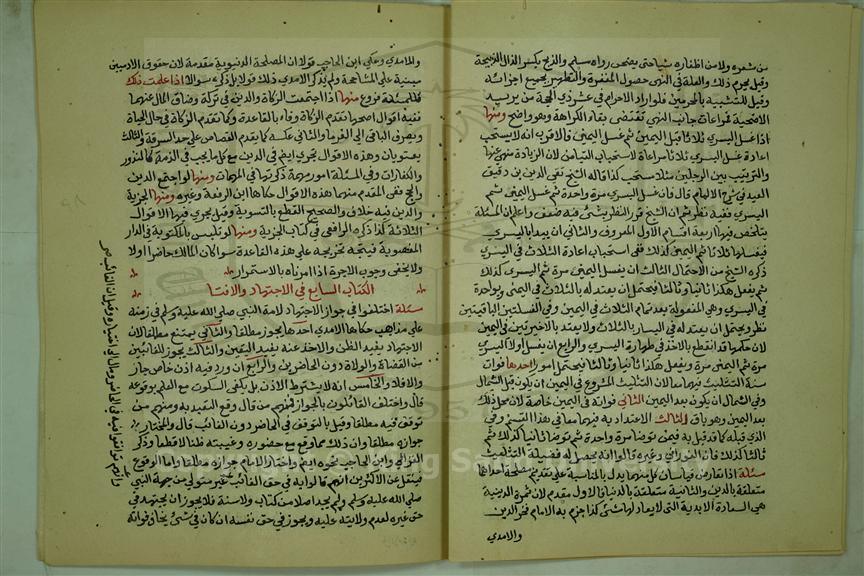 من شعره ولا من اظفاره شيا حتى يضحى رواه مسلم والذبح بكسر الذال الذبيحة
وقيل يحرم ذلك والعلة فى النهى حصول المغفرة والتطهير بجميع اجزائه
وقيل للتشبيه بالمحرمين فلو اراد الاحرام فى عشر ذى الحجة من يريد
الاضحية فمراعات جانب النهى تقتضى بقاء الكراهة وهو واضح ومنها
اذا غسل اليسرى ثلاثا قبل اليمين ثم غسل اليمنى والاقرب انه لا يستحب
اعادة غسل اليسرى ثلاثا مراعاة لاستحباب التيامن لان الزيادة منهى عنها
والترتيب بين الرجلين مثلا مستحب كذا قاله الشيخ تقى الدين بن دقيق
العيد فى شرح الالمام قال فان غسل اليسرى مرة واحدة ثم غسل اليمنى ثم
اليسرى ففيه نظر ثم ان الشيخ قرر النظر بشئ فيه ضعف واعلم ان المسئلة
يتلخص فيها اربعة اقسام الاول المعروف والثانى ان يبدا باليسرى
فيغسلها ثلاثا ثم اليمين كذلك ففى استحباب اعادة الثلاث فى اليسرى
ذكره الشيخ من الاحتمال الثالث ان يغسل اليمين مرة ثم اليسرى كذلك
ثم يفعل هكذا ثانيا وثالثا فيحتمل ان يعتد له بالثلاث فى اليمنى وبواحدة
فى اليسرى وهى المفعولة بعد تمام الثلاث فى اليمين وفى الغسلتين الباقيتين
نظر ويحتمل ان يعتد له فى اليسار بالثلاث ولا يعتد بالاخيرتين فى اليمين
لان حكمها قد انقطع بالاخذ فى طهارة اليسرى والرابع ان يغسل اولا اليسرى
مرة ثم اليمنى مرة ويفعل هكذا ثانيا وثالثا فيحتمل امورا احدها فوات
سنة التثليث فيهما لان التثليث المشروع فى اليمين ان يكون قبل الشمال
وفى الشمال ان يكون بعد اليمين الثانى فواته فى اليمين خاصة لان محل ذلك
بعد اليمين وهو باق الثالث الاعتداد به فيهما معا فى هذا القسم وفى
الذى قبله كما قد قيل به فيمن توضا مرة واحدة ثم توضا ثانيا كذلك ثم
ثالثا كذلك فان النووى وغيره قالوا انه يحصل له فضيلة التثليث
مسئلة اذا تعارض قياسان كل منهما يدل بالمناسبة على تقديم مصلحة احداهما
متعلقة بالدين والثانية متعلقة بالدنيا فالاول مقدم لان ثمرة الدينية
هى السعادة الابدية التى لا يعادلها شئ كذا جزم به الامام فخر الدين
والامدى
والامدى وحكى ابن الحاجب قولا ان المصلحة الدنيوية مقدمة لان حقوق الادميين
مبنية على المشاححة ولم يذكر الامدى ذلك قولا بل ذكره سوالا اذا علمت ذلك
فللمسئلة فروع منها اذا اجتمعت الزكاة والدين فى تركة وضاق المال عنهما
ففيه اقوال اصحها تقدم الزكاة وفاء بالقاعدة وكما تقدم الزكاة فى حال الحياة
ويصرف الباقى الى الغرما والثانى عكسه كما يقدم القصاص على حد السرقة والثالث
يستويان وهذه الاقوال تجرى ايضا فى الدين مع كل ما يجب فى الذمة كالمنذور
والكفارات وفى المسئلة امور مهمة ذكرتها فى المهمات ومنها لو اجتمع الدين
والحج ففى المقدم منهما هذه الاقوال حكاها ابن الرفعة وغيره ومنها الجزية
والدين فيه خلاف والصحيح القطع بالتسوية وقيل يجرى فيها الاقوال
الثلاثة كذا ذكره الرافعى فى كتاب الجزية ومنها لو تلبس بالمكتوبة فى الدار
المغصوبة فيتجه تخريجه على هذه القاعدة سوا كان المالك حاضرا اولا
ولا يخفى وجوب الاجرة اذا امرناه بالاستمرار
الكتاب السابع فى الاجتهاد والافتا
مسئلة اختلفوا فى جواز الاجتهاد لامة النبى صلى الله عليه وسلم فى زمنه
على مذاهب حكاها الامدى احدها يجوز مطلقا والثانى يمتنع مطلقا لان
الاجتهاد يفيد الظن والاخذ عنه يفيد اليقين والثالث يجوز للغائبين
من القضاة والولاة دون الحاضرين والرابع ان ورد فيه اذن خاص جاز
والا فلا والخامس انه لا يشترط الاذن بل يكفى السكوت مع العلم بوقوعه
قال واختلف القائلون بالجواز فمنهم من قال وقع التعبد به ومنهم من
توقف فيه مطلقا وقيل بالتوقف فى الحاضر دون الغائب قال والمختار
جوازه مطلقا وان ذلك مما وقع مع حضوره وغيبته ظنا لا قطعا وذكر
الغزالى وابن الحاجب نحوه ايضا واختار الامام جوازه مطلقا واما الوقوع
فينقل عن الاكثرين انهم قالوا به فى حق الغائب غير متولى من جهة النبى
صلى الله عليه وسلم ولم يجد اصلا من كتاب ولا سنة فلا يجوز ان يجتهد فى
حق غيره لعدم ولايته عليه ويجوز فى حق نفسه ان كان فى شئ يخاف فواته